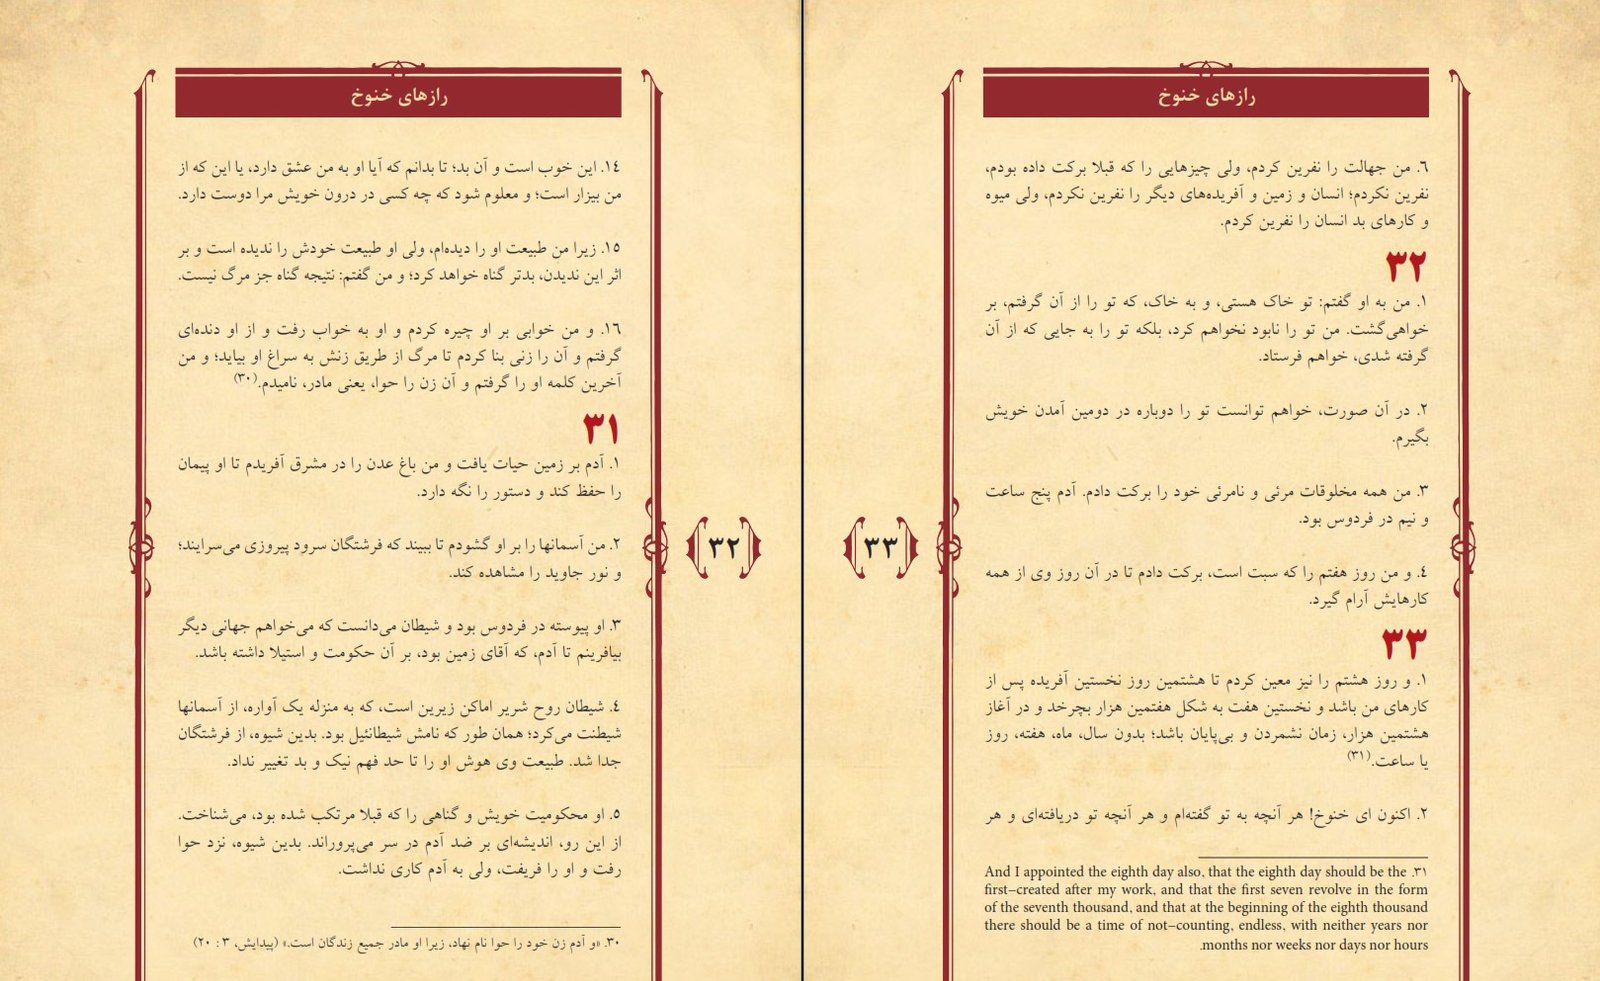 رازهای خنوخ
١٤. این خوب است و آن بد؛ تا بدانم که آیا او به من عشق دارد، یا این که از
من بیزار است؛ و معلوم شود که چه کسی در درون خویش مرا دوست دارد.
١٥. زیرا من طبیعت او را دیده‌ام، ولی او طبیعت خودش را ندیده است و بر
اثر این ندیدن، بدتر گناه خواهد کرد؛ و من گفتم: نتیجه گناه جز مرگ نیست.
١٦. و من خوابی بر او چیره کردم و او به خواب رفت و از او دنده‌ای
گرفتم و آن را زنی بنا کردم تا مرگ از طریق زنش به سراغ او بیاید؛ و من
آخرین کلمه او را گرفتم و آن زن را حوا، یعنی مادر، نامیدم.(٣٠)
٣١
١. آدم بر زمین حیات یافت و من باغ عدن را در مشرق آفریدم تا او پیمان
را حفظ کند و دستور را نگه دارد.
٢. من آسمانها را بر او گشودم تا ببیند که فرشتگان سرود پیروزی می‌سرایند؛
و نور جاوید را مشاهده کند.
٣. او پیوسته در فردوس بود و شیطان می‌دانست که می‌خواهم جهانی دیگر
بیافرینم تا آدم، که آقای زمین بود، بر آن حکومت و استیلا داشته باشد.
٤. شیطان روح شریر اماکن زیرین است، که به منزله یک آواره، از آسمانها
شیطنت می‌کرد؛ همان طور که نامش شیطانئیل بود. بدین شیوه، از فرشتگان
جدا شد. طبیعت وی هوش او را تا حد فهم نیک و بد تغییر نداد.
٥. او محکومیت خویش و گناهی را که قبلا مرتکب شده بود، می‌شناخت.
از این رو، اندیشه‌ای بر ضد آدم در سر می‌پروراند. بدین شیوه، نزد حوا
رفت و او را فریفت، ولی به آدم کاری نداشت.
٣٠. «و آدم زن خود را حوا نام نهاد، زیرا او مادر جمیع زندگان است.» (پیدایش، ٣ : ٢٠)
٣٢
رازهای خنوخ
٦. من جهالت را نفرین کردم، ولی چیزهایی را که قبلا برکت داده بودم،
نفرین نکردم؛ انسان و زمین و آفریده‌های دیگر را نفرین نکردم، ولی میوه
و کارهای بد انسان را نفرین کردم.
٣٢
١. من به او گفتم: تو خاک هستی، و به خاک، که تو را از آن گرفتم، بر
خواهی‌گشت. من تو را نابود نخواهم کرد، بلکه تو را به جایی که از آن
گرفته شدی، خواهم فرستاد.
٢. در آن صورت، خواهم توانست تو را دوباره در دومین آمدن خویش
بگیرم.
٣. من همه مخلوقات مرئی و نامرئی خود را برکت دادم. آدم پنج ساعت
و نیم در فردوس بود.
٤. و من روز هفتم را که سبت است، برکت دادم تا در آن روز وی از همه
کارهایش آرام گیرد.
٣٣
١. و روز هشتم را نیز معین کردم تا هشتمین روز نخستین آفریده پس از
کارهای من باشد و نخستین هفت به شکل هفتمین هزار بچرخد و در آغاز
هشتمین هزار، زمان نشمردن و بی‌پایان باشد؛ بدون سال، ماه، هفته، روز
یا ساعت.(٣١)
٢. اکنون ای خنوخ! هر آنچه به تو گفته‌ام و هر آنچه تو دریافته‌ای و هر
٣١. And I appointed the eighth day also, that the eighth day should be the
first–created after my work, and that the first seven revolve in the form
of the seventh thousand, and that at the beginning of the eighth thousand
there should be a time of not–counting, endless, with neither years nor
months nor weeks nor days nor hours.
٣٣